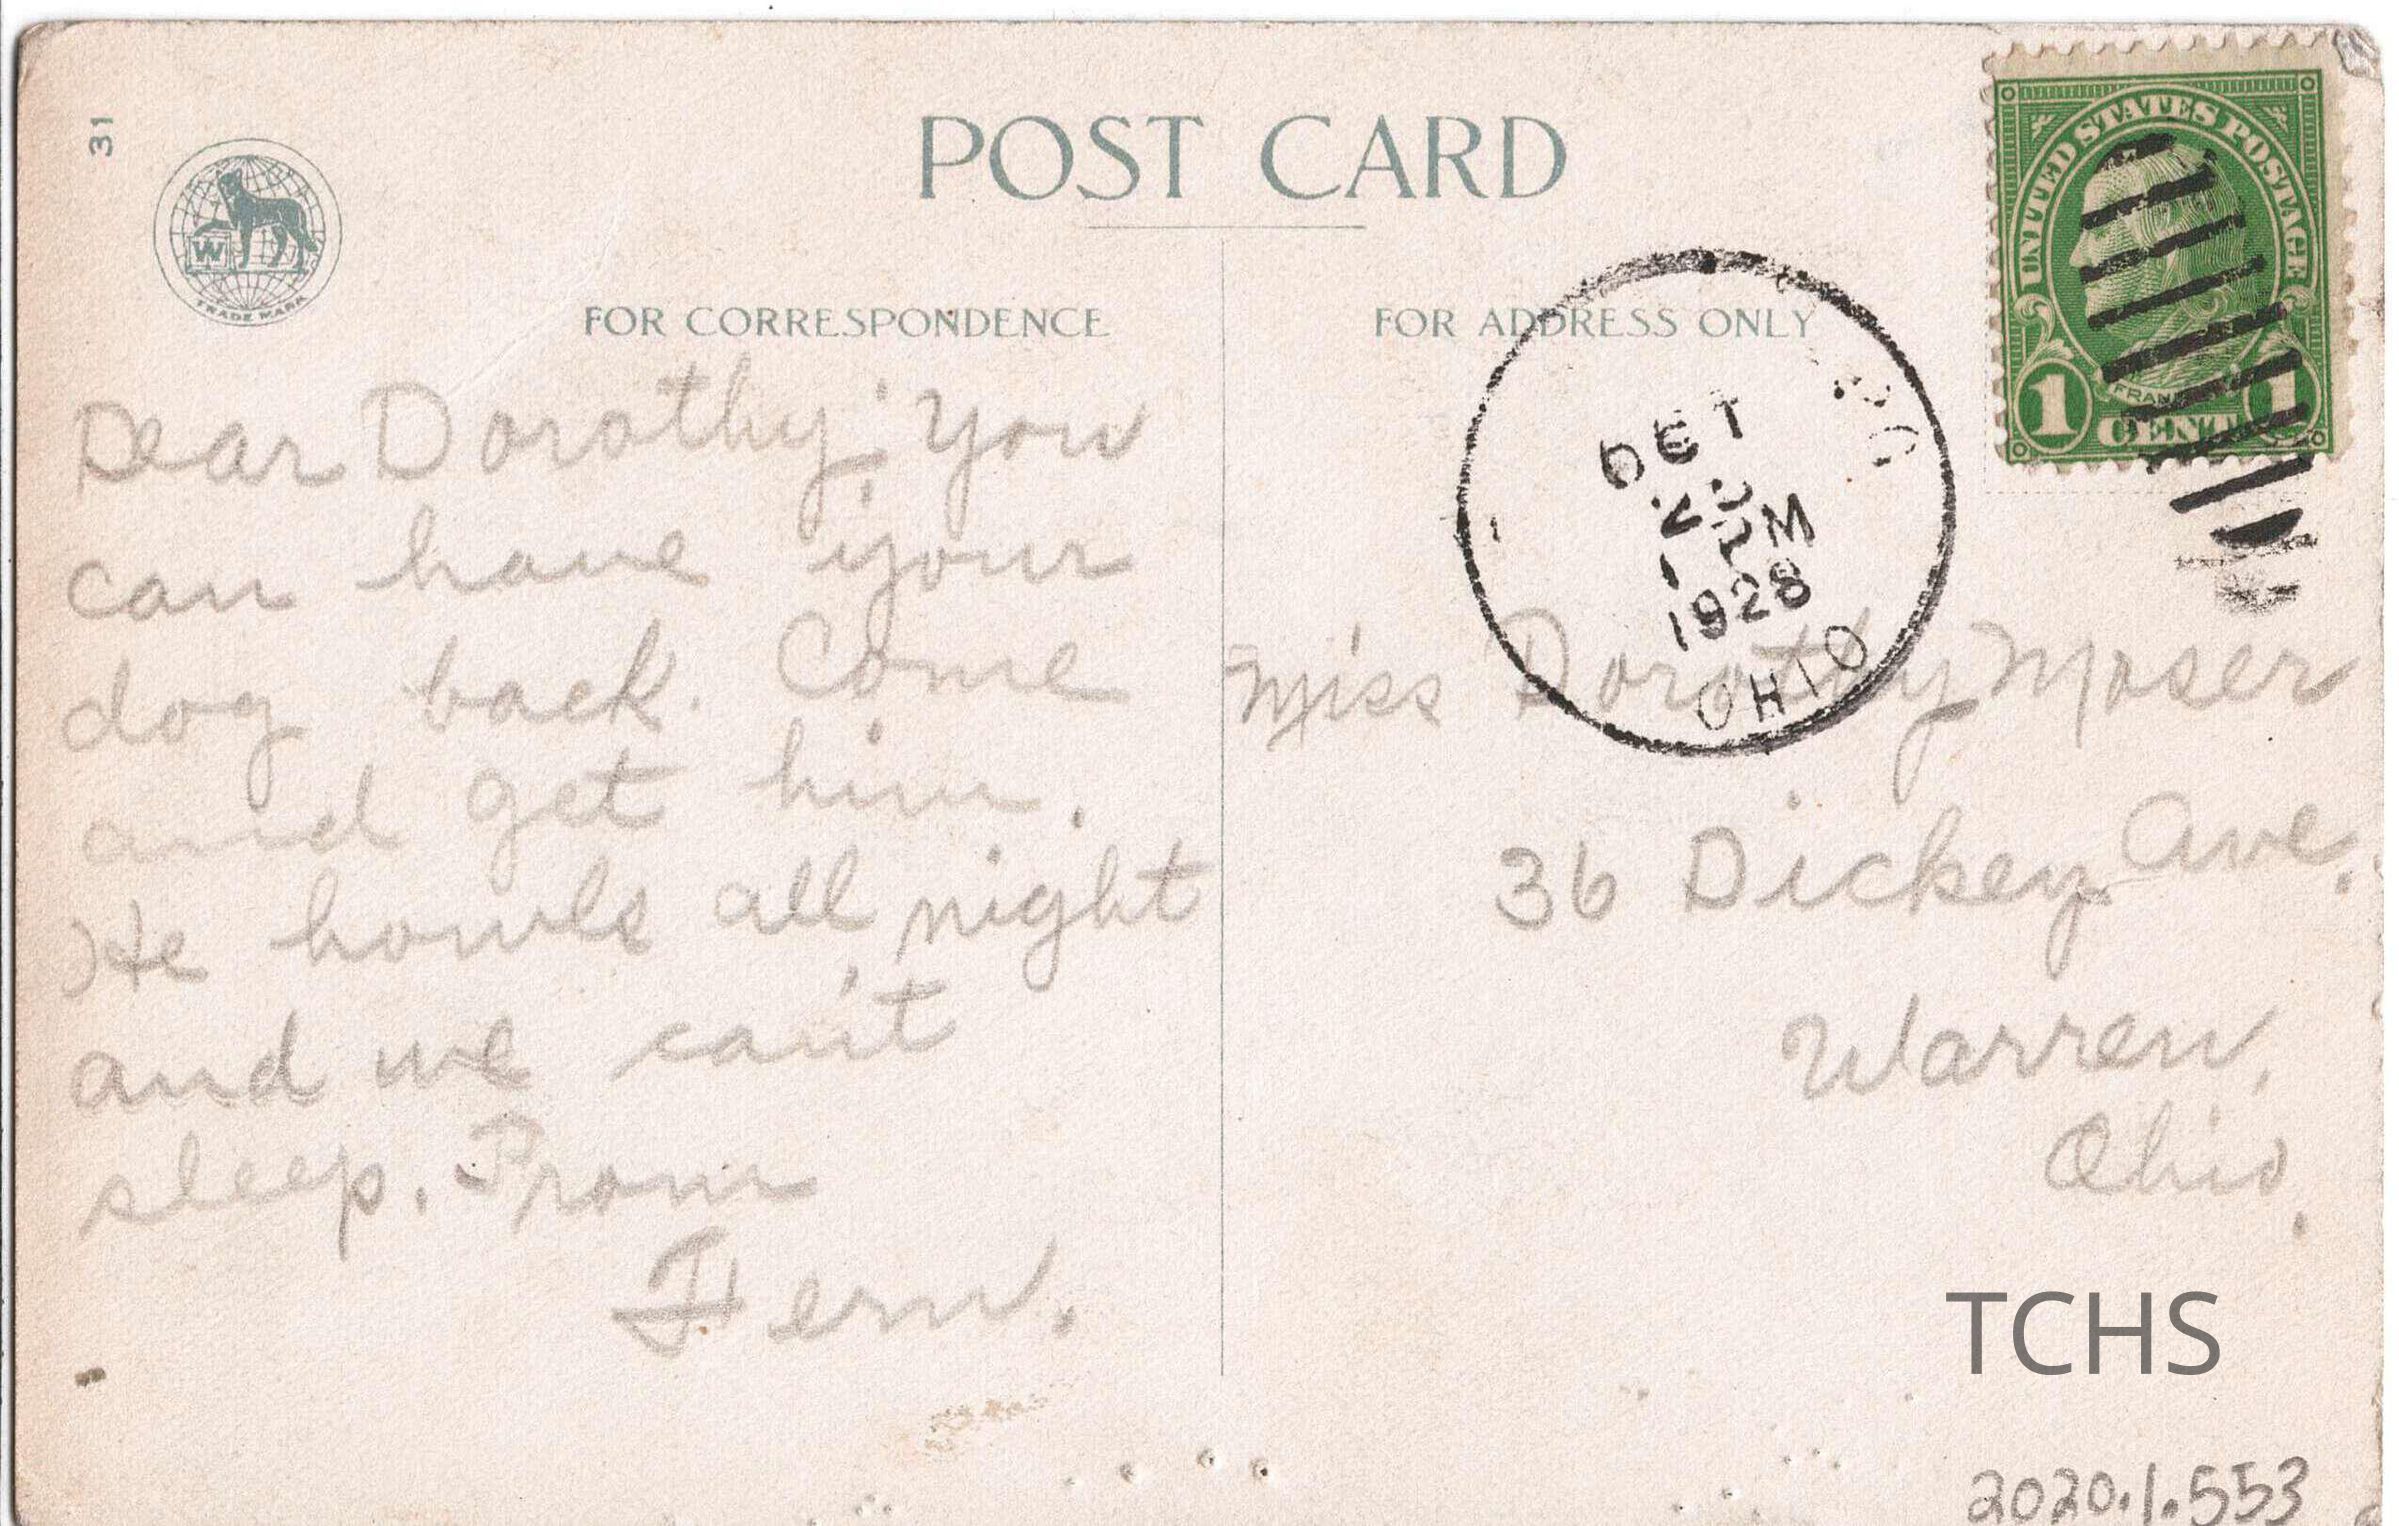 31
POST CARD
W
TRADE MARK
FOR CORRESPONDENCE
FOR ADDRESS ONLY
UNITED STATES POSTAGE
1 CENT 1
OCT
1928
OHIO
Dear Dorothy: you
can have your
dog back. Come
and get him.
He howls all night
and we can't
sleep. From
Fern.
Miss Dorothy Moser
36 Dickey Ave.
Warren,
Ohio.
TCHS
2020.1.553